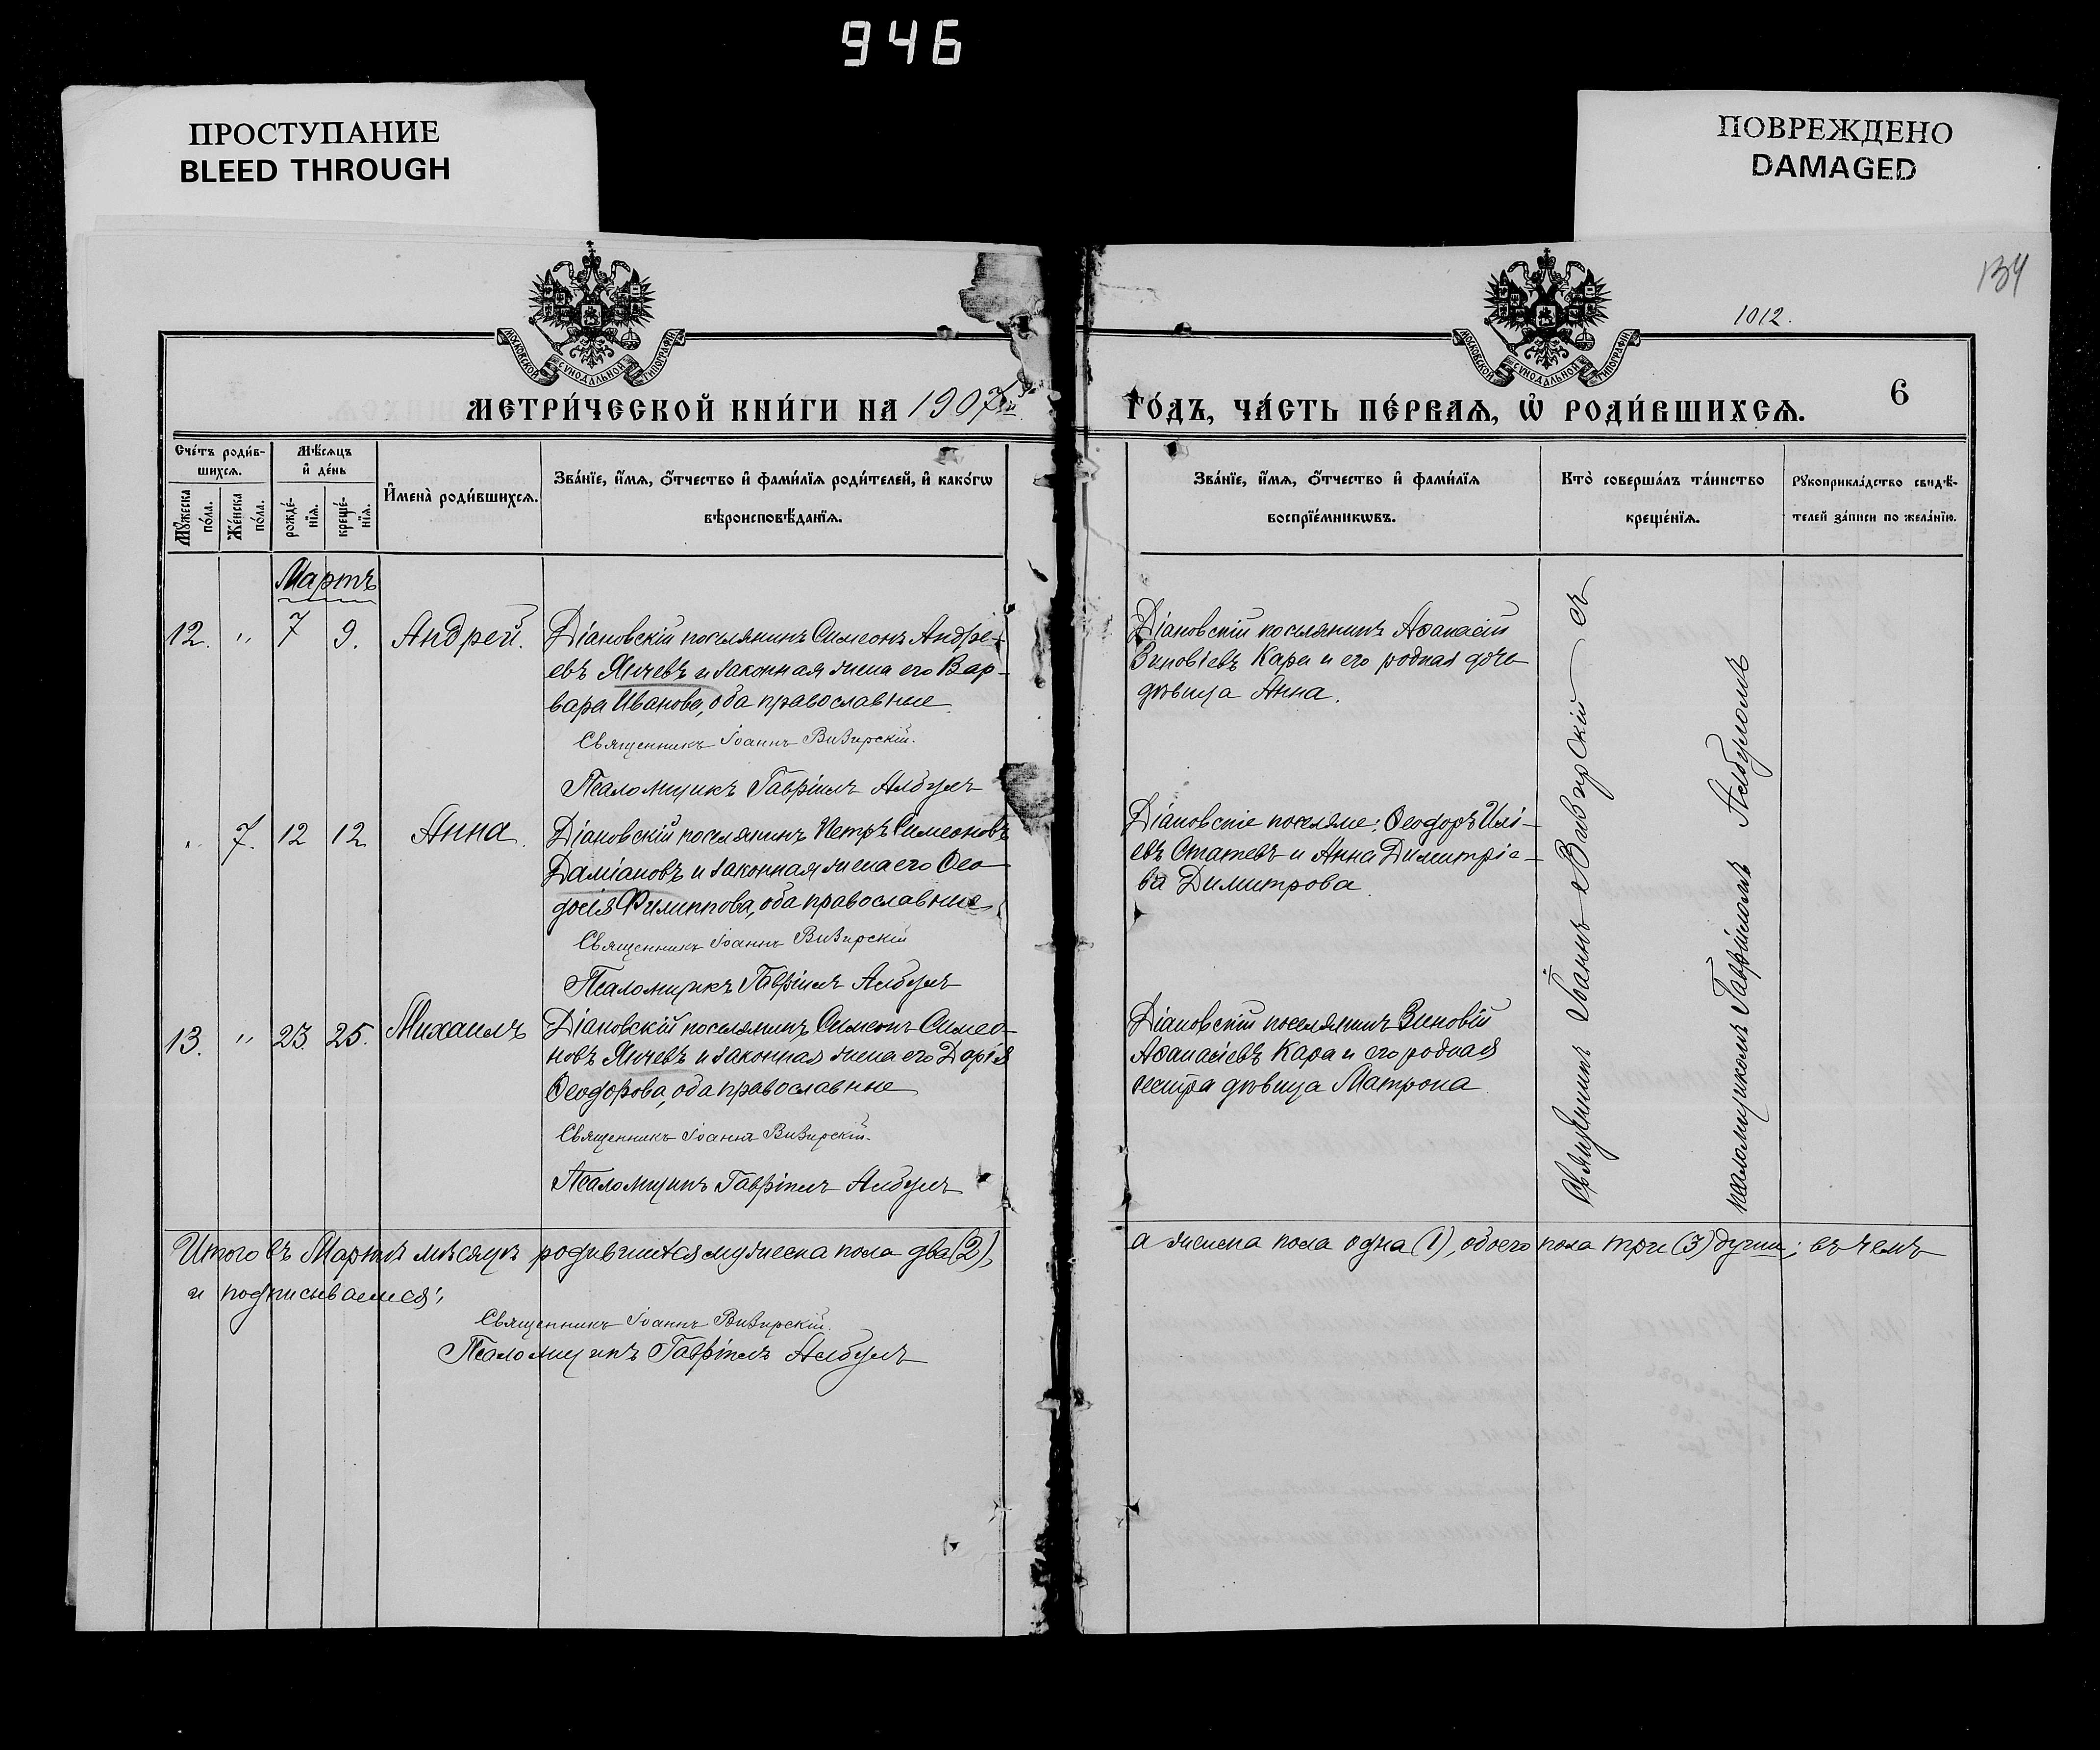 946
ПРОСТУПАНИЕ
BLEED THROUGH
ПОВРЕЖДЕНО
DAMAGED
134
1012.
МОСКОВСКОЙ СУНОДАЛЬНОЙ ТИПОГРАФІИ
МОСКОВСКОЙ СУНОДАЛЬНОЙ ТИПОГРАФІИ
МЕТРИ́ЧЕСКОЙ КНИ́ГИ НА 1907й
ГО́ДЪ, ЧА́СТЬ ПЕ́РВАѦ, Ѡ҆ РОДИ́ВШИХСѦ.
6
Сче́тъ роди́в-
шихсѧ.
Мѣ́сѧцъ
и҆ де́нь
Мꙋ́жеска
по́ла.
Же́нска
по́ла.
рожде́-
нїѧ.
креще́-
нїѧ.
И҆мена̀ роди́вшихсѧ.
Зва́нїе, и҆́мѧ, ѻ҆́тчество и҆ фами́лїѧ роди́телей, и҆ како́гѡ
вѣроисповѣ́данїѧ.
Зва́нїе, и҆́мѧ, ѻ҆́тчество и҆ фами́лїѧ
воспрїе́мникѡвъ.
Кто̀ соверша́лъ та́инство
креще́нїѧ.
Рꙋкоприкла́дство свидѣ́-
телей за́писи по жела́нїю.
Мартъ
12. " 7 9. Андрей.
Діановскій поселянинъ Симеонъ Андре-
евъ Янчевъ и законная жена его Вар-
вара Иванова, оба православные
Священникъ Іоаннъ Визирскій.
Псаломщикъ Гавріилъ Албулъ
Діановскій поселянинъ Аѳанасій
Зиновіевъ Кара и его родная дочь
дѣвица Анна.
" 7. 12 12 Анна.
Діановскій поселянинъ Петръ Симеоновъ
Даміановъ и законная жена его Ѳео-
досія Филиппова, оба православные
Священникъ Іоаннъ Визирскій
Псаломщикъ Гавріилъ Албулъ
Діановскіе поселяне: Ѳеодоръ Илі-
евъ Статевъ и Анна Димитріе-
ва Димитрова.
13. " 23. 25. Михаилъ
Діановскій поселянинъ Симеонъ Симео-
новъ Янчевъ и законная жена его Дарія
Ѳеодорова, оба православные
Священникъ Іоаннъ Визирскій.
Псаломщикъ Гавріилъ Албулъ
Діановскій поселянинъ Зиновій
Аѳанасіевъ Кара и его родная
сестра дѣвица Матрона
Священникъ Іоаннъ Визирскій съ
псаломщикомъ Гавріиломъ Албуломъ
Итого въ Мартѣ мѣсяцѣ родившихся мужеска пола два (2),
а женска пола одна (1), обоего пола три (3) души; въ чемъ
и подписываемся:
Священникъ Іоаннъ Визирскій.
Псаломщикъ Гавріилъ Албулъ